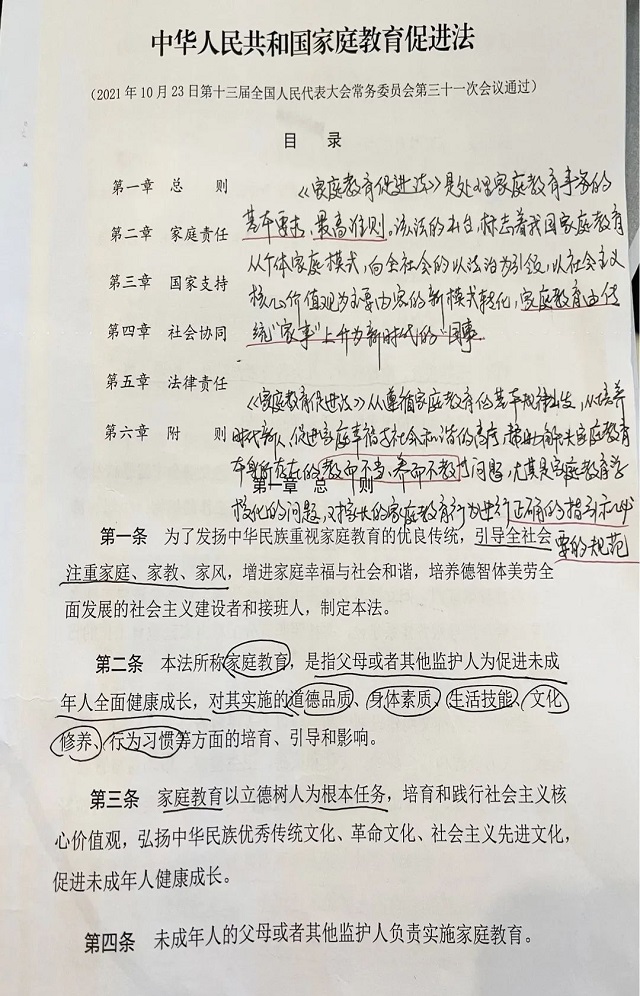 中华人民共和国家庭教育促进法
（2021年10月23日第十三届全国人民代表大会常务委员会第三十一次会议通过）
目 录
第一章 总 则
第二章 家庭责任
第三章 国家支持
第四章 社会协同
第五章 法律责任
第六章 附 则
《家庭教育促进法》是处理家庭教育事务的
基本要求、最高准则。该法的出台，标志着我国家庭教育
从个体家庭模式，向全社会的以法治为引领，以社会主义
核心价值观为主要内容的新模式转化，家庭教育由传
统"家事"上升为新时代的"国事"。
《家庭教育促进法》从遵循家庭教育的基本规律出发，从培养
时代新人、促进家庭幸福与社会和谐的高度，帮助解决家庭教育
本身所存在的教而不当、养而不教等问题，尤其是家庭教育学
校化的问题，对家长的家庭教育行为进行正确的指引和必
要的规范
第一章 总 则
第一条 为了发扬中华民族重视家庭教育的优良传统，引导全社会
注重家庭、家教、家风，增进家庭幸福与社会和谐，培养德智体美劳全
面发展的社会主义建设者和接班人，制定本法。
第二条 本法所称家庭教育，是指父母或者其他监护人为促进未成
年人全面健康成长，对其实施的道德品质、身体素质、生活技能、文化
修养、行为习惯等方面的培育、引导和影响。
第三条 家庭教育以立德树人为根本任务，培育和践行社会主义核
心价值观，弘扬中华民族优秀传统文化、革命文化、社会主义先进文化，
促进未成年人健康成长。
第四条 未成年人的父母或者其他监护人负责实施家庭教育。